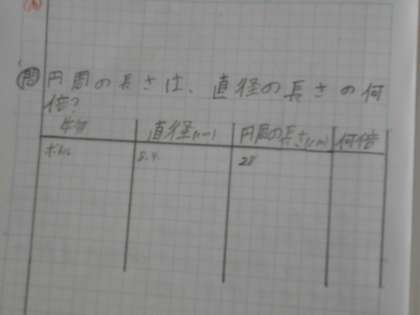 問 円周の長さは、直径の長さの何
倍?
直径(cm) 円周の長さ(cm) 何倍
28